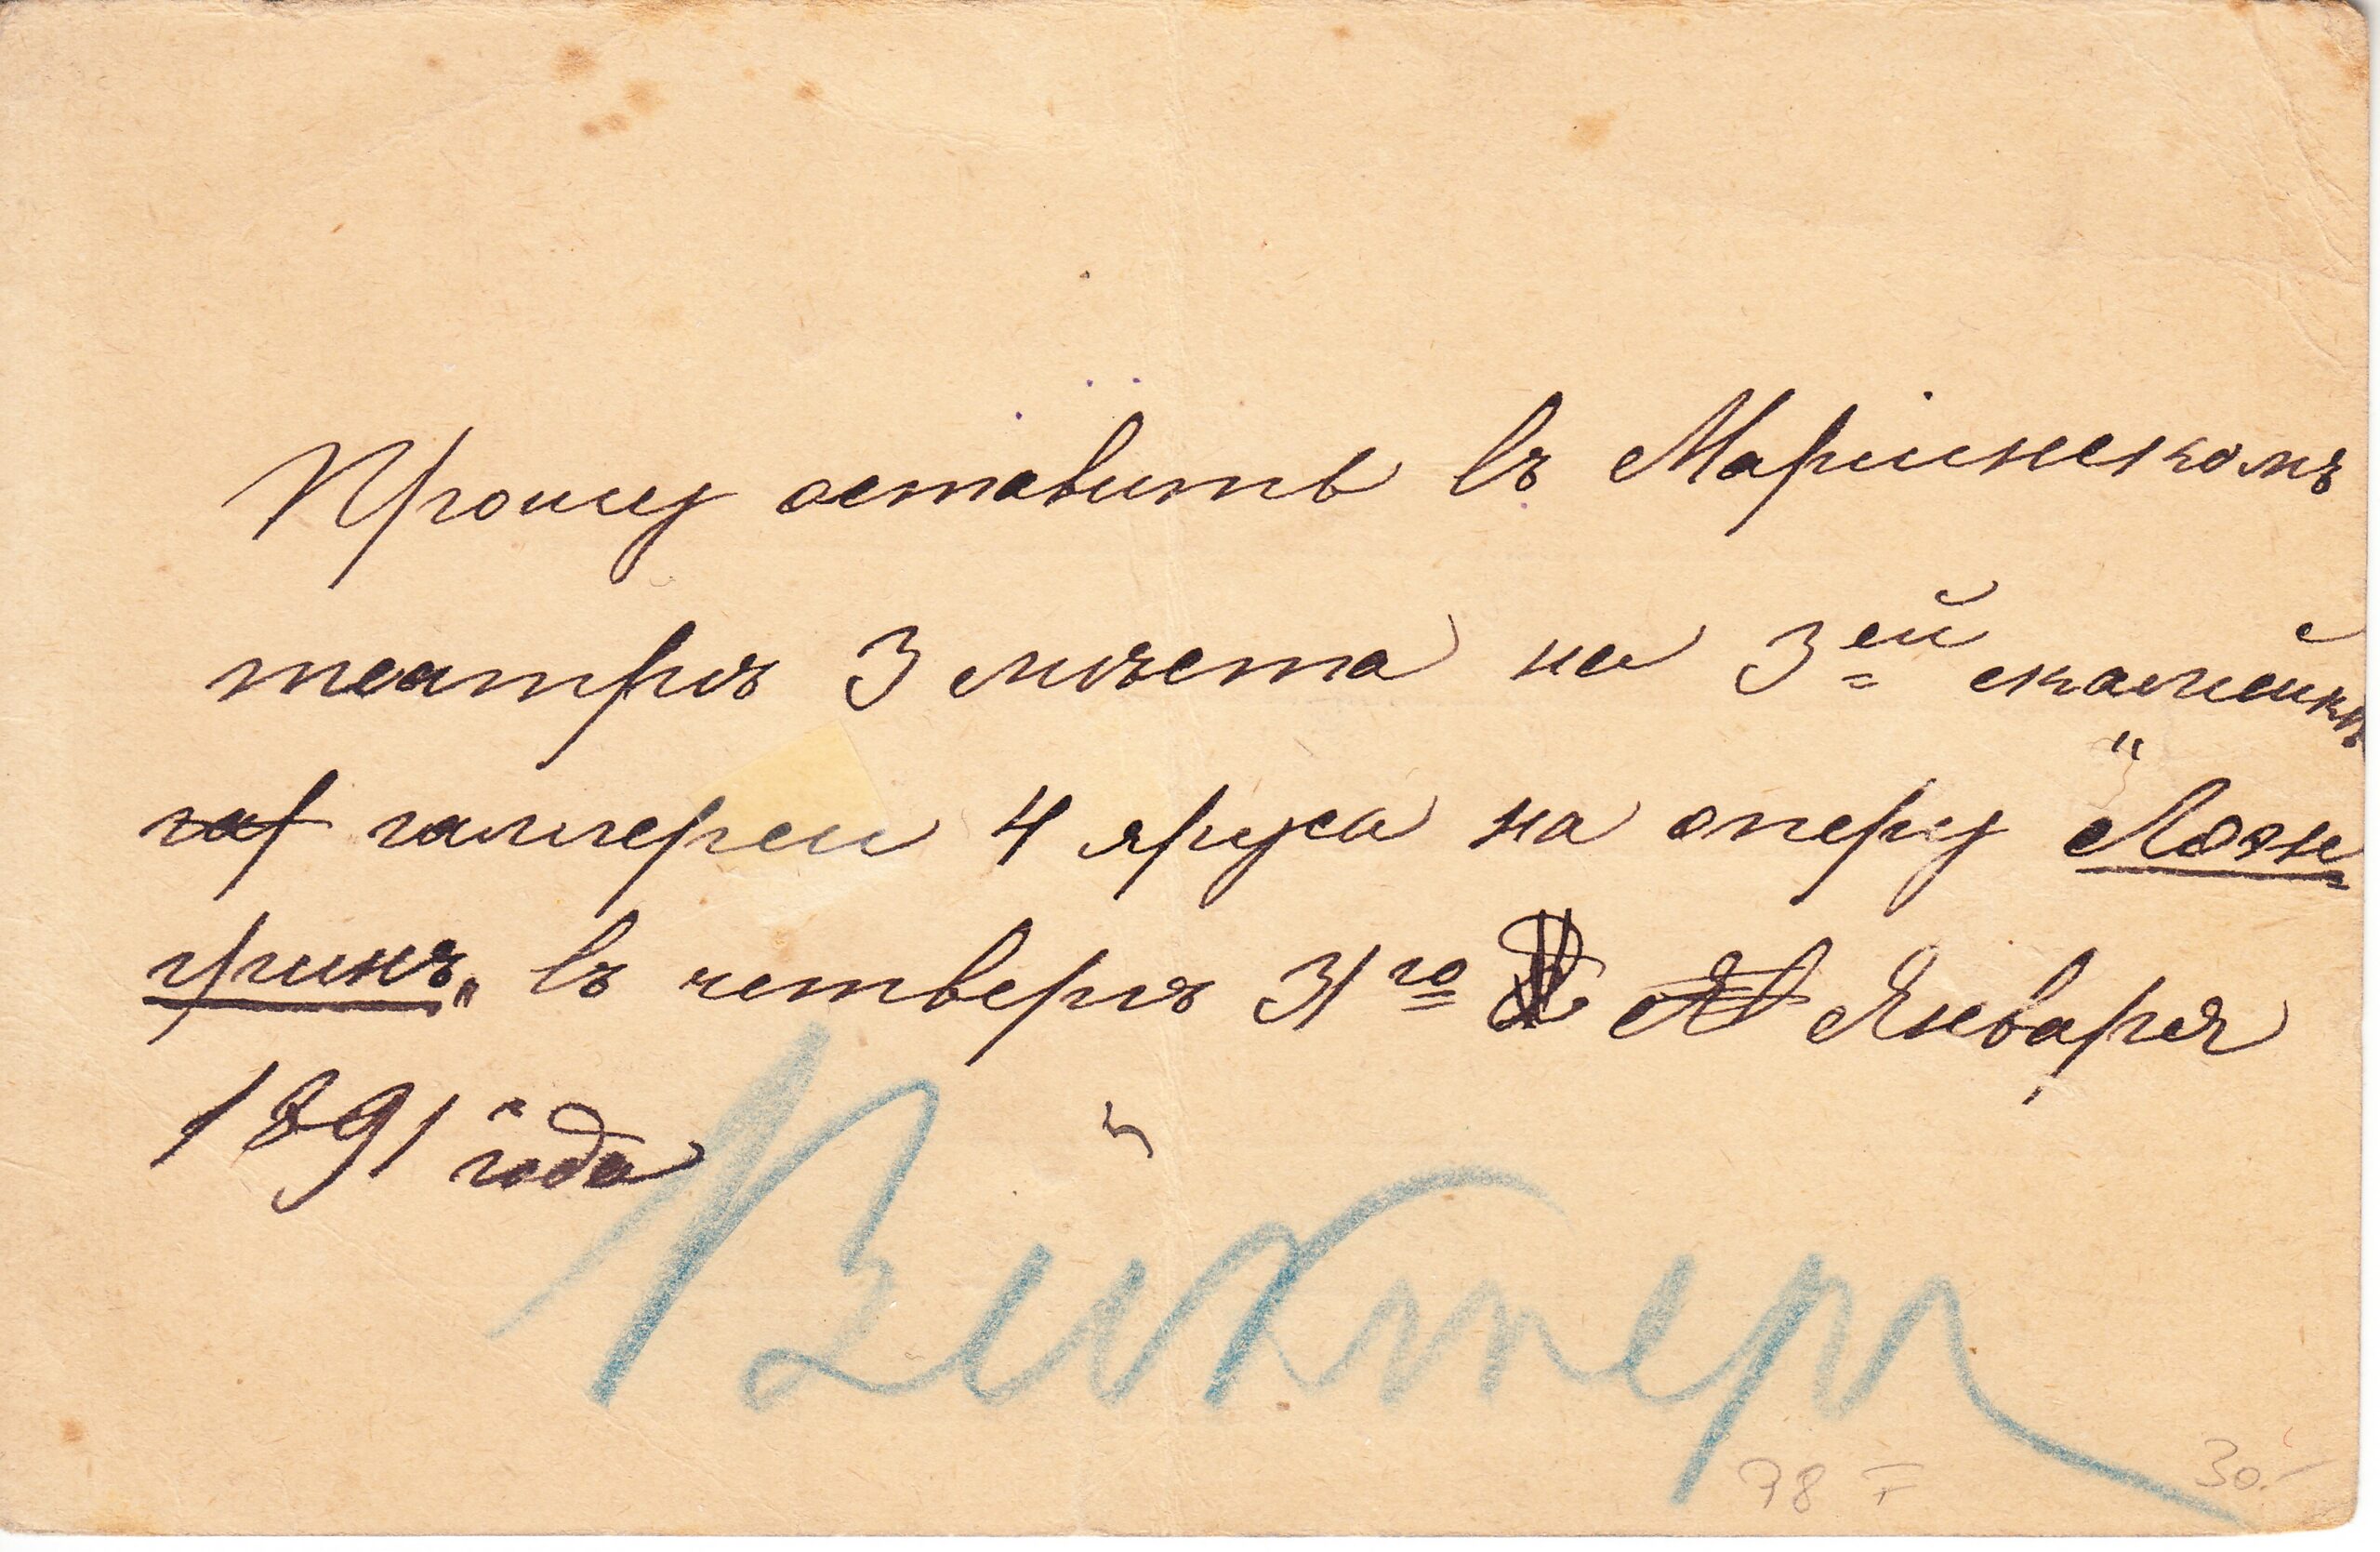 Прошу оставить въ Маріинскомъ
театрѣ 3 мѣста на 3ей скамейкѣ
гал галлереи 4 яруса на оперу „Лоэн-
гринъ“ въ четвергъ 31го Января
1891 года
78 F
30.-